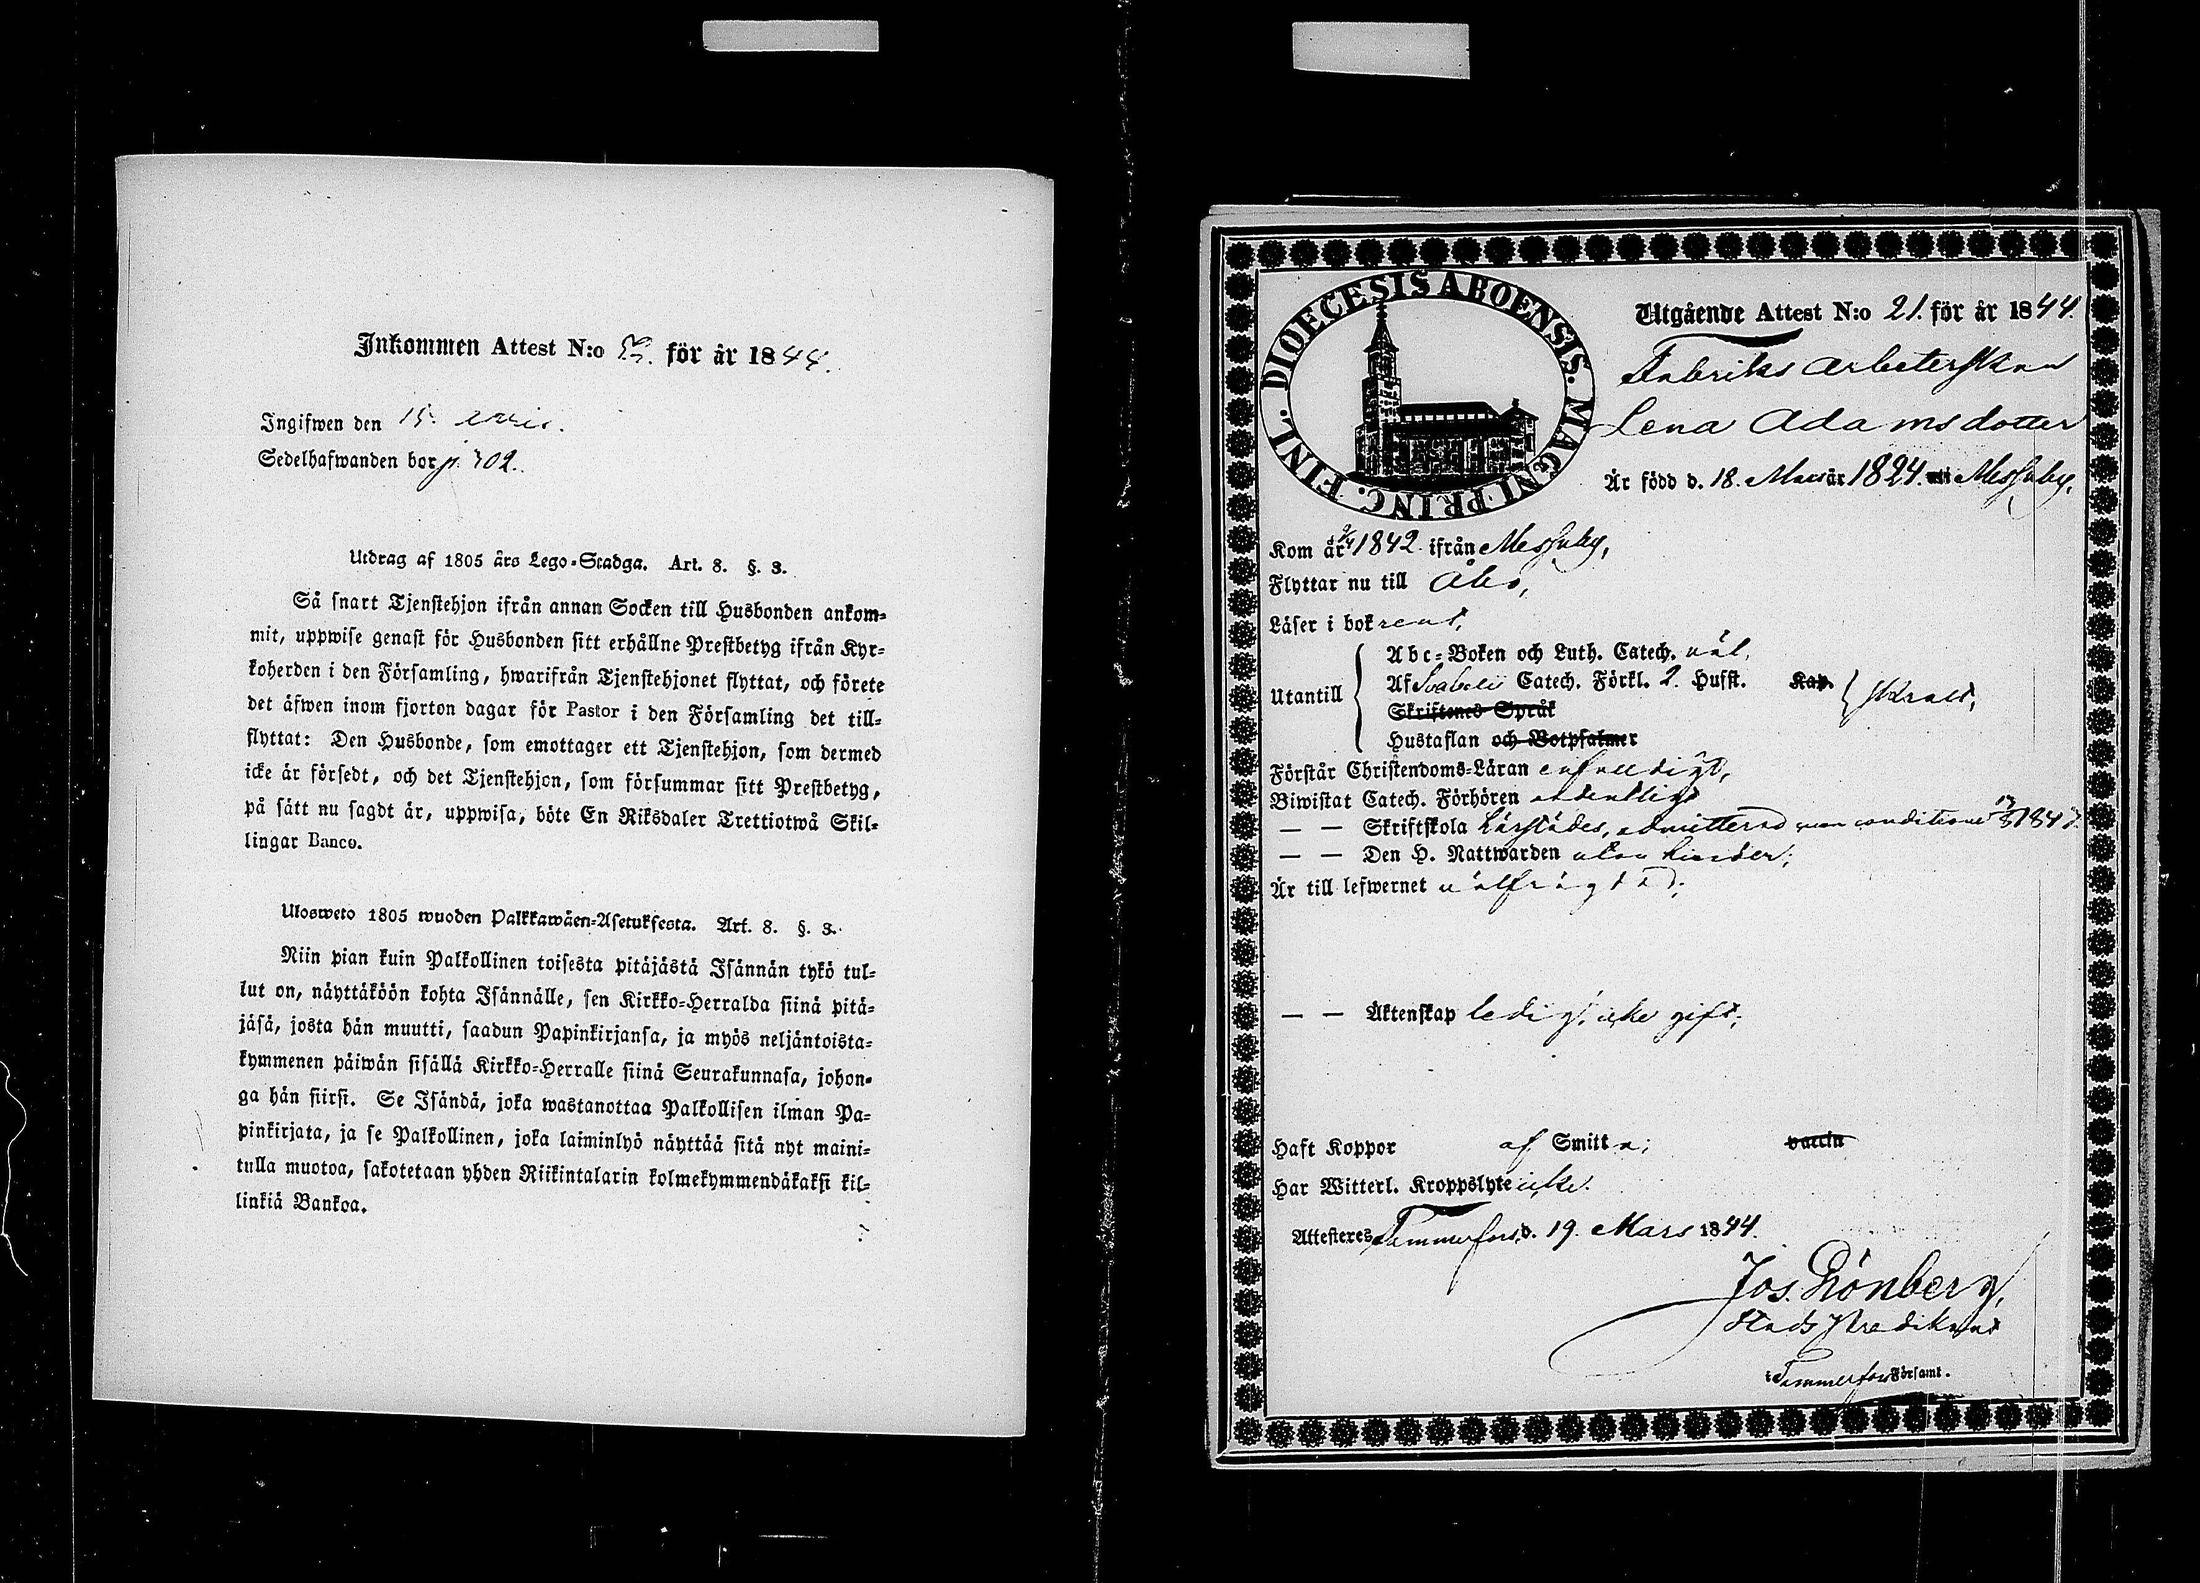 Inkommen Attest N:o för år 1844.
Ingifwen den 15.
Sedelhafwanden bor p. 702.
Utdrag af 1805 års Lego-Stadga. Art. 8. §. 3.
Så snart Tjenstehjon ifrån annan Socken till Husbonden ankom-
mit, uppwise genast för Husbonden sitt erhållne Prestbetyg ifrån Kyr-
koherden i den Församling, hwarifrån Tjenstehjonet flyttat, och förete
det äfwen inom fjorton dagar för Pastor i den Församling det till-
flyttat: Den Husbonde, som emottager ett Tjenstehjon, som dermed
icke är försedt, och det Tjenstehjon, som försummar sitt Prestbetyg,
på sätt nu sagdt är, uppwisa, böte En Riksdaler Trettiotwå Skil-
lingar Banco.
Ulosweto 1805 wuoden Palkkawäen-Asetuksesta. Art. 8. §. 3.
Niin pian kuin Palkollinen toisesta pitäjästä Isännän tykö tul-
lut on, näyttäköön kohta Isännälle, sen Kirkko-Herralda siinä pitä-
jäsä, josta hän muutti, saadun Papinkirjansa, ja myös neljäntoista-
kymmenen päiwän sisällä Kirkko-Herralle siinä Seurakunnasa, johon-
ga hän siirsi. Se Isändä, joka wastanottaa Palkollisen ilman Pa-
pinkirjata, ja se Palkollinen, joka laiminlyö näyttää sitä nyt maini-
tulla muotoa, sakotetaan yhden Riikintalarin kolmekymmendäkaksi kil-
linkiä Bankoa.
DIOECESIS ABOENSIS. MAGNI PRINC. FINL.
Utgående Attest N:o 21. för år 1844.
Fabriks arbeterskan
Lena Adamsdotter
Är född d. 18. Mars år 1824. i Messuby,
Kom år 1842 ifrån Messuby,
Flyttar nu till Åbo,
Läser i bok rent,
Utantill
Abc-Boken och Luth. Catech. väl,
Af Svebelii Catech. Förkl. 2. Hufst. Kap.
Skriftenes Språk
Hustaflan och Botpsalmer
svagt,
Förstår Christendoms-Läran enfaldigt,
Biwistat Catech. Förhören ordentligt
— — Skriftskola härstädes, admitterad
— — Den H. Nattwarden utan hinder;
Är till lefwernet välfrägdad;
— — Äktenskap ledig, icke gift;
Haft Koppor af Smitta; vaccin
Har Witterl. Kroppslyte icke.
Attesteres Tammerfors d. 19. Mars 1844.
Jos. Grönberg,
Stads Predikant
i Tammerfors Församl.